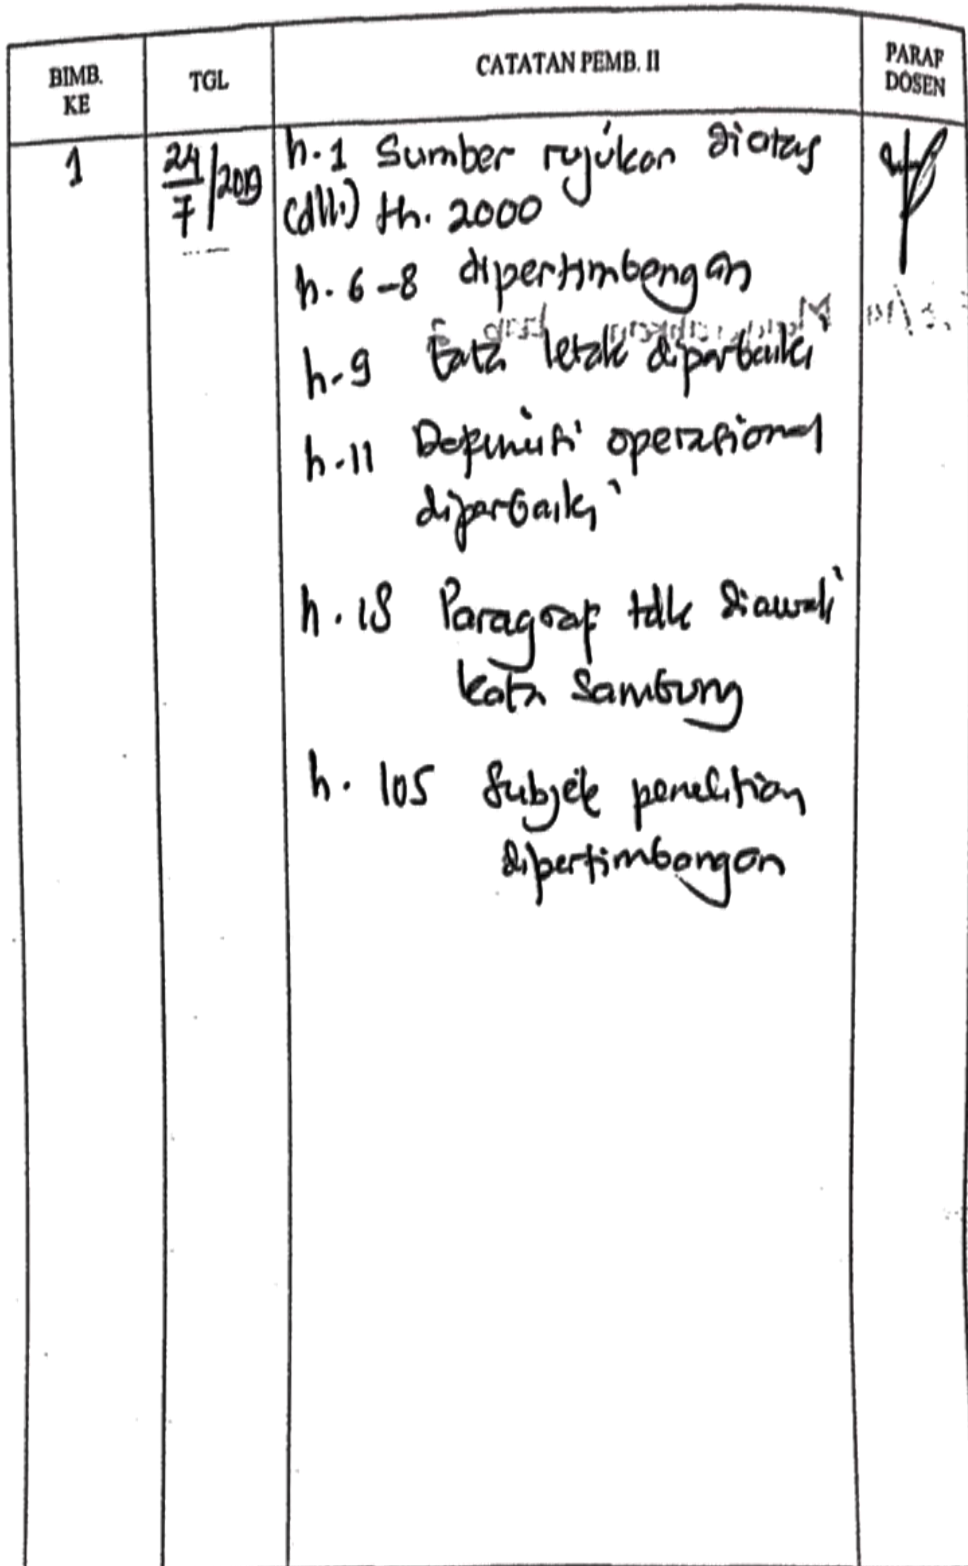 BIMB. KE TGL CATATAN PEMB. II PARAF DOSEN
1 24/7/2019 h.1 Sumber rujukan diatas
(dll.) th. 2000
h.6-8 dipertimbangan
h.9 tata letak diperbaiki
h.11 Definisi operasional
diperbaiki
h.18 Paragraf tdk diawali
kata sambung
h.105 Subjek penelitian
dipertimbangan